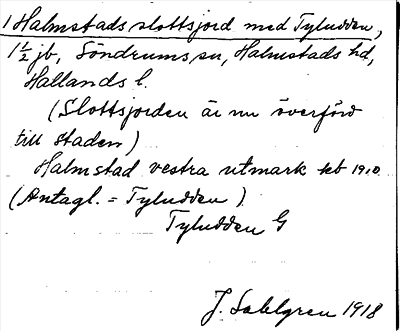 1 Halmstads slottsjord med Tyludden,
1 1/2 jb, Söndrums sn, Halmstads hd,
Hallands l.
(Slottsjorden är nu överförd
till staden)
Halmstad vestra utmark kb 1910
(Antagl. = Tyludden)
Tyludden G
J. Sahlgren 1918